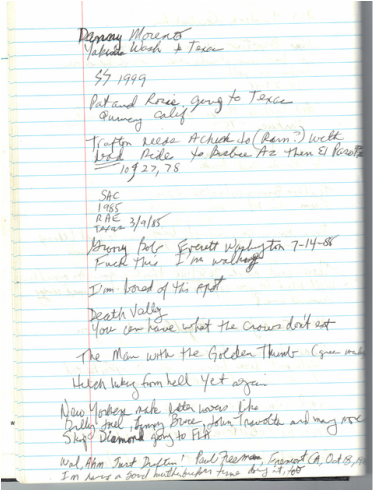 Danny Moreno
Yakima Wash + Texas
SS 1999
Pat and Rosie, going to Texas
Quincy Calif
Trafton needs A chick to (Ram?) with
Lead Rides to Bisbee Az then El Paso
10/27, 78
SAC
1985
RAE
Texas 3/9/85
Bob Everett Washington 7-14-85
Fuck This I'm walking
I'm bored of this spot
Death Vally
You can have what the crows don't eat
The Man with the Golden Thumb
Hitch Hikey from hell Yet again
New Yorkers make better lovers like
Billy Joel, Lenny Bruce, John Travolta and many more
Skip Diamond going to FLA
Wal, Ahm Just Driftin! Paul Freeman, Fremont CA, Oct 18,
I'm having a good time doing it, too